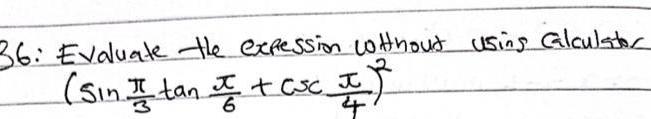 36: Evaluate the expession without using Calculator
(sin π/3 tan π/6 + csc π/4)²